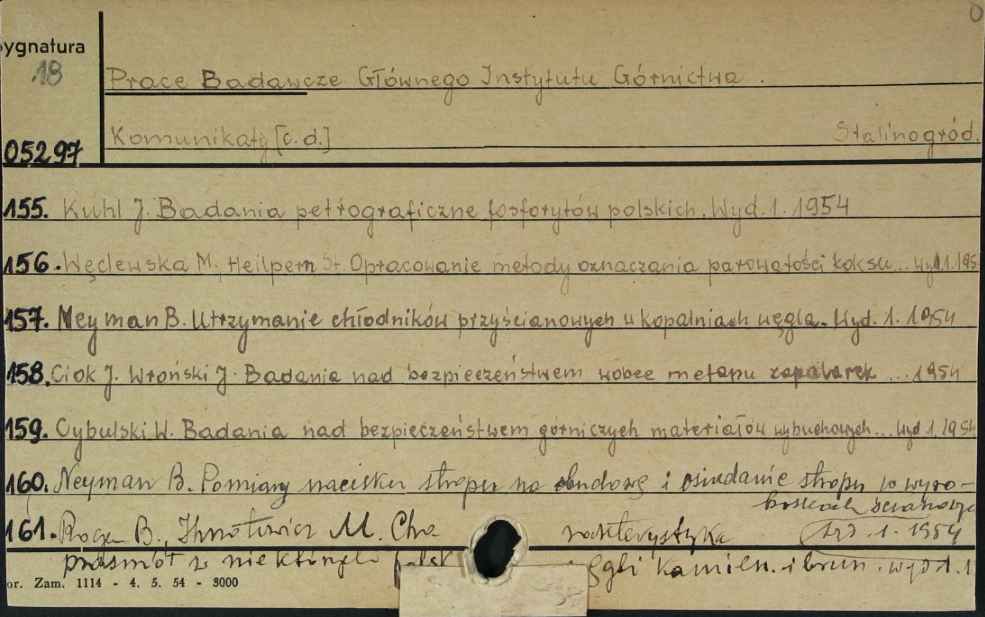 ygnatura
18
Prace Badawcze Głównego Instytutu Górnictwa.
Komunikaty [c.d.] Stalinogród.
05297
155. Kuhl J. Badania petrograficzne fosforytów polskich. Wyd. 1. 1954
156. Węclewska M., Heilpern St. Opracowanie metody oznaczania porowatości koksu... Wyd. 1. 195
157. Neyman B. Utrzymanie chłodników przyścianowych w kopalniach węgla. Wyd. 1. 1954
158. Ciok J. Wroński J. Badania nad bezpieczeństwem wobec metanu zapalarek ... 1954
159. Cybulski W. Badania nad bezpieczeństwem górniczych materiałów wybuchowych... Wyd 1. 1954
160. Neyman B. Pomiary nacisku stropu na obudowę i osiadanie stropu w wyro-
biskach
161. B., M. Cha rakterystyka Wyd. 1. 1954
prasmół z niektórych polsk ęgli kamien. i brun. wyd. 1
or. Zam. 1114 - 4. 5. 54 - 3000